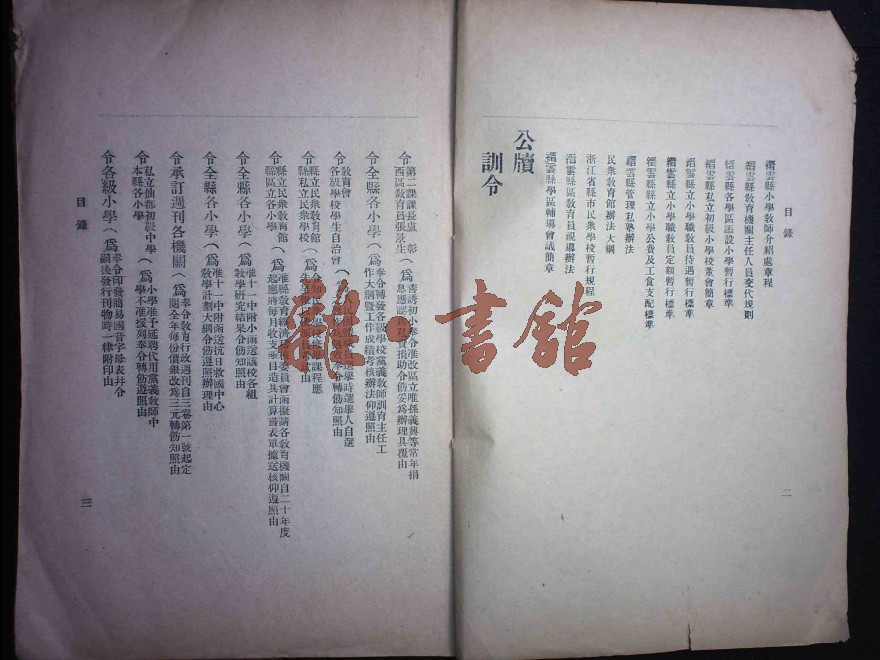 目錄
縉雲縣小學教師介紹處章程
縉雲縣教育機關主任人員交代規則
縉雲縣各學區添設小學暫行標準
縉雲縣私立初級小學校董會簡章
縉雲縣立小學職教員待遇暫行標準
縉雲縣立小學職教員定額暫行標準
縉雲縣縣立小學公費及工食支配標準
縉雲縣管理私塾辦法
民衆教育館辦法大綱
浙江省縣市民衆學校暫行規程
縉雲縣區教育員視導辦法
縉雲縣學區輔導會議簡章
二
公牘
訓令
令第二課課長盧彰
西區教育員張景生(爲
令全縣各小學(爲奉令轉發各級學校黨義教師訓育主任工
作大綱暨工作成績考核辦法仰遵照由
令教育會
各級學校學生自治會
令縣立民衆教育館
縣私立民衆學校
令縣立民衆教育館
縣區立各小學(爲准縣教育經濟
起應將每月收支
造具計算書表單據送核仰遵照由
令全縣各小學(爲准十一中附小函送該校各組
教學研究結果令仰知照由
令全縣各小學(爲准十一中附送抗日救國中心
教學計劃大綱令仰遵照辦理由
令承訂週刊各機關(爲奉令教育行政週刊自三卷第一號起定
閱全年每份價銀改爲三元轉飭知照由
令私立仙都初級中學
本縣各小學(爲小學准予延聘代用黨義教師中
學不准援列奉令轉飭遵照由
令各級小學(爲奉令印發簡易國音字母表幷令
嗣後發行刊物時一律附印由
目錄
三
雜·書館